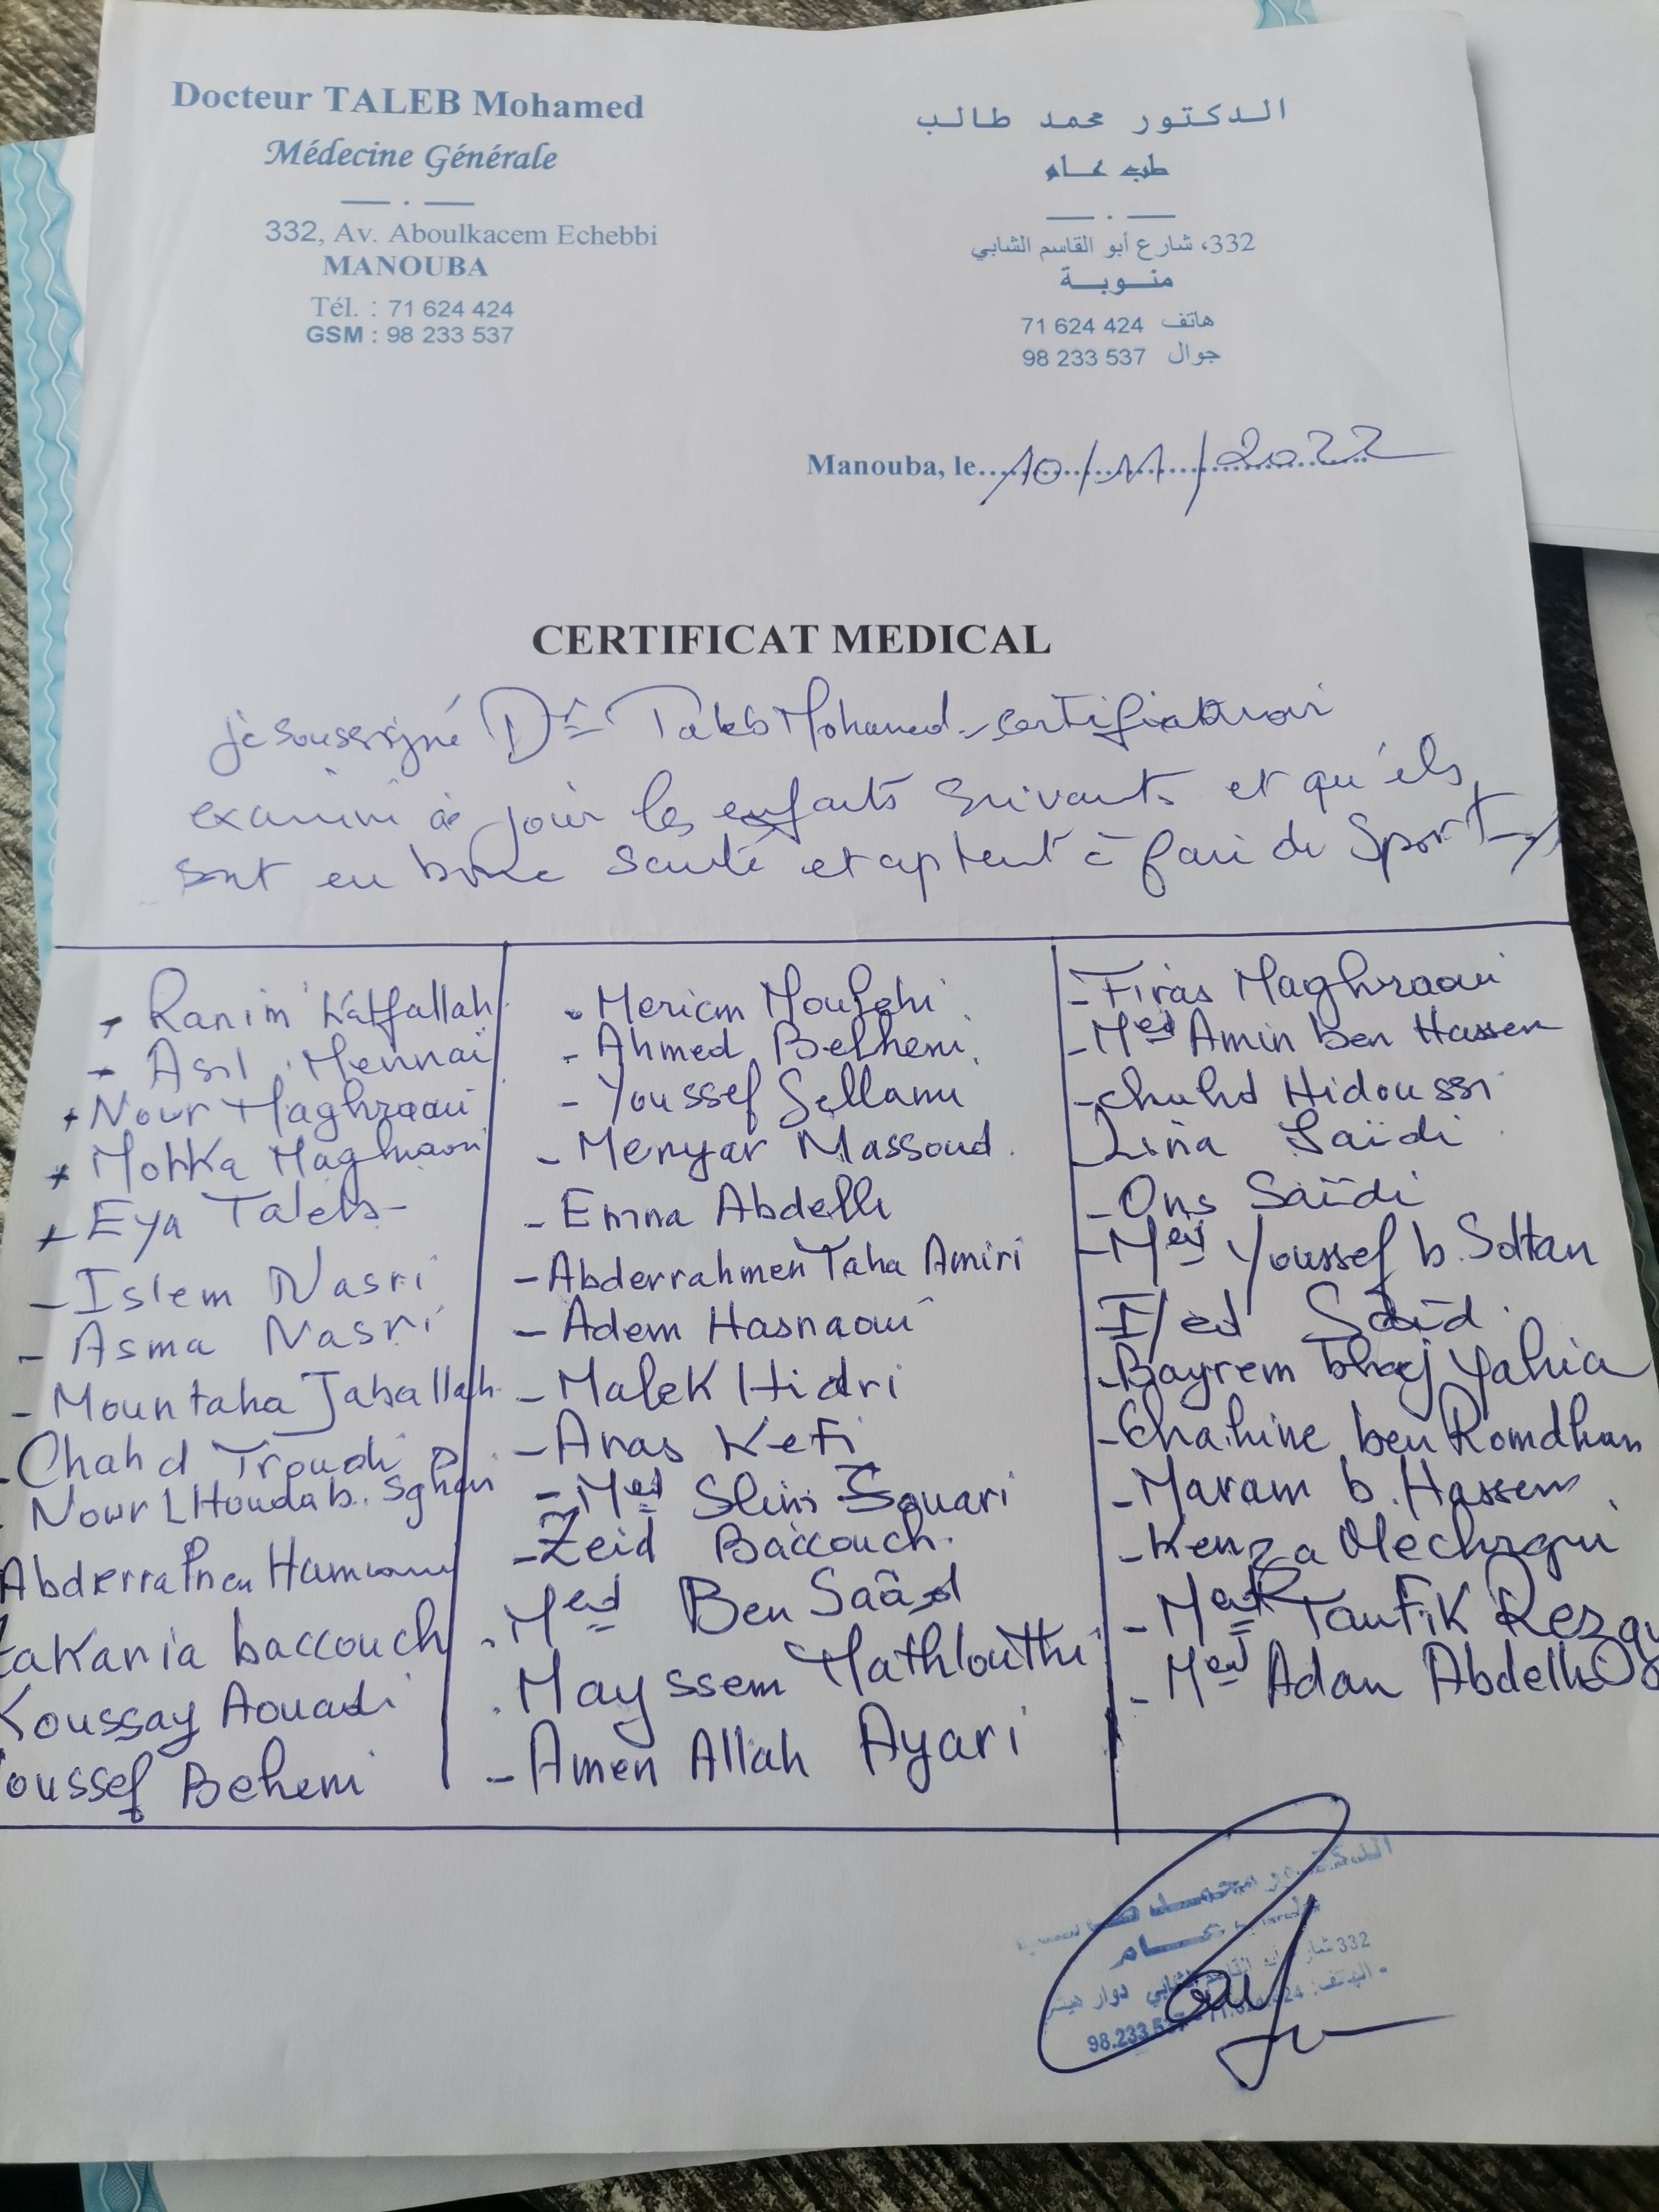 Docteur TALEB Mohamed
Médecine Générale
332, Av. Aboulkacem Echebbi
MANOUBA
Tél. : 71 624 424
GSM : 98 233 537
الدكتور محمد طالب
طب عام
332، شارع أبو القاسم الشابي
منوبة
هاتف 71 624 424
جوال 98 233 537
Manouba, le 10/11/2022
CERTIFICAT MEDICAL
je soussigné Dr Taleb Mohamed certifie avoir
examiné ce jour les enfants suivants et qu'ils
sont en bonne santé et à faire du Sport
+ Ranim Katfallah
- Asil Mennaï
+ Nour Maghraoui
+ Mokka Maghraoui
+ Eya Taleb
- Islem Nasri
- Asma Nasri
- Mountaha Jaballah
- Chahd Troudi
Nour L Houda b. Sghai
Abderrahmen
Zakaria baccouch
Koussay Aouadi
oussef Behemi
- Meriem
- Ahmed Belhemi
- Youssef Sellami
- Menyar Massoud
- Emna Abdelli
- Abderrahmen Taha Amiri
- Adem Hasnaoui
- Malek Hidri
- Anas Kefi
- Med Slim Souari
- Zeid Baccouch
- Med Ben Saâd
- Mayssem Mathlouthi
- Amen Allah Ayari
- Firas Maghraoui
- Med Amin ben Hassen
- Hidoussi
- Lina Saïdi
- Ons Saïdi
- Med Youssef b. Soltan
Saïd
- Bayrem bhaj Yahia
- Chahine ben Romdhan
- Maram b. Hassen
- Kenza Mechrgui
- Med Taufik
- Med Adam Abdelli
عام
332
98.233.537